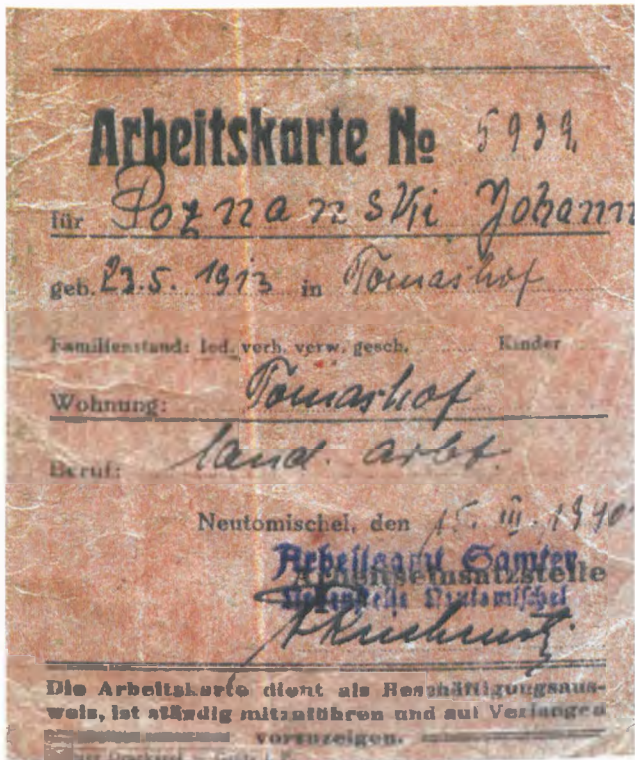 Arbeitskarte No 5939
für Poznanski Johann
geb. 23.5.1913 in Tomashof
Familienstand: led. verh. verw. gesch. Kinder
Wohnung: Tomashof
Beruf: land. arbt.
Neutomischel, den 15. III. 1940
Arbeitsamt Samter
Arbeitseinsatzstelle
Nebenstelle Neutomischel
Die Arbeitskarte dient als Beschäftigungsaus-
weis, ist ständig mitzuführen und auf Verlangen
vorzuzeigen.